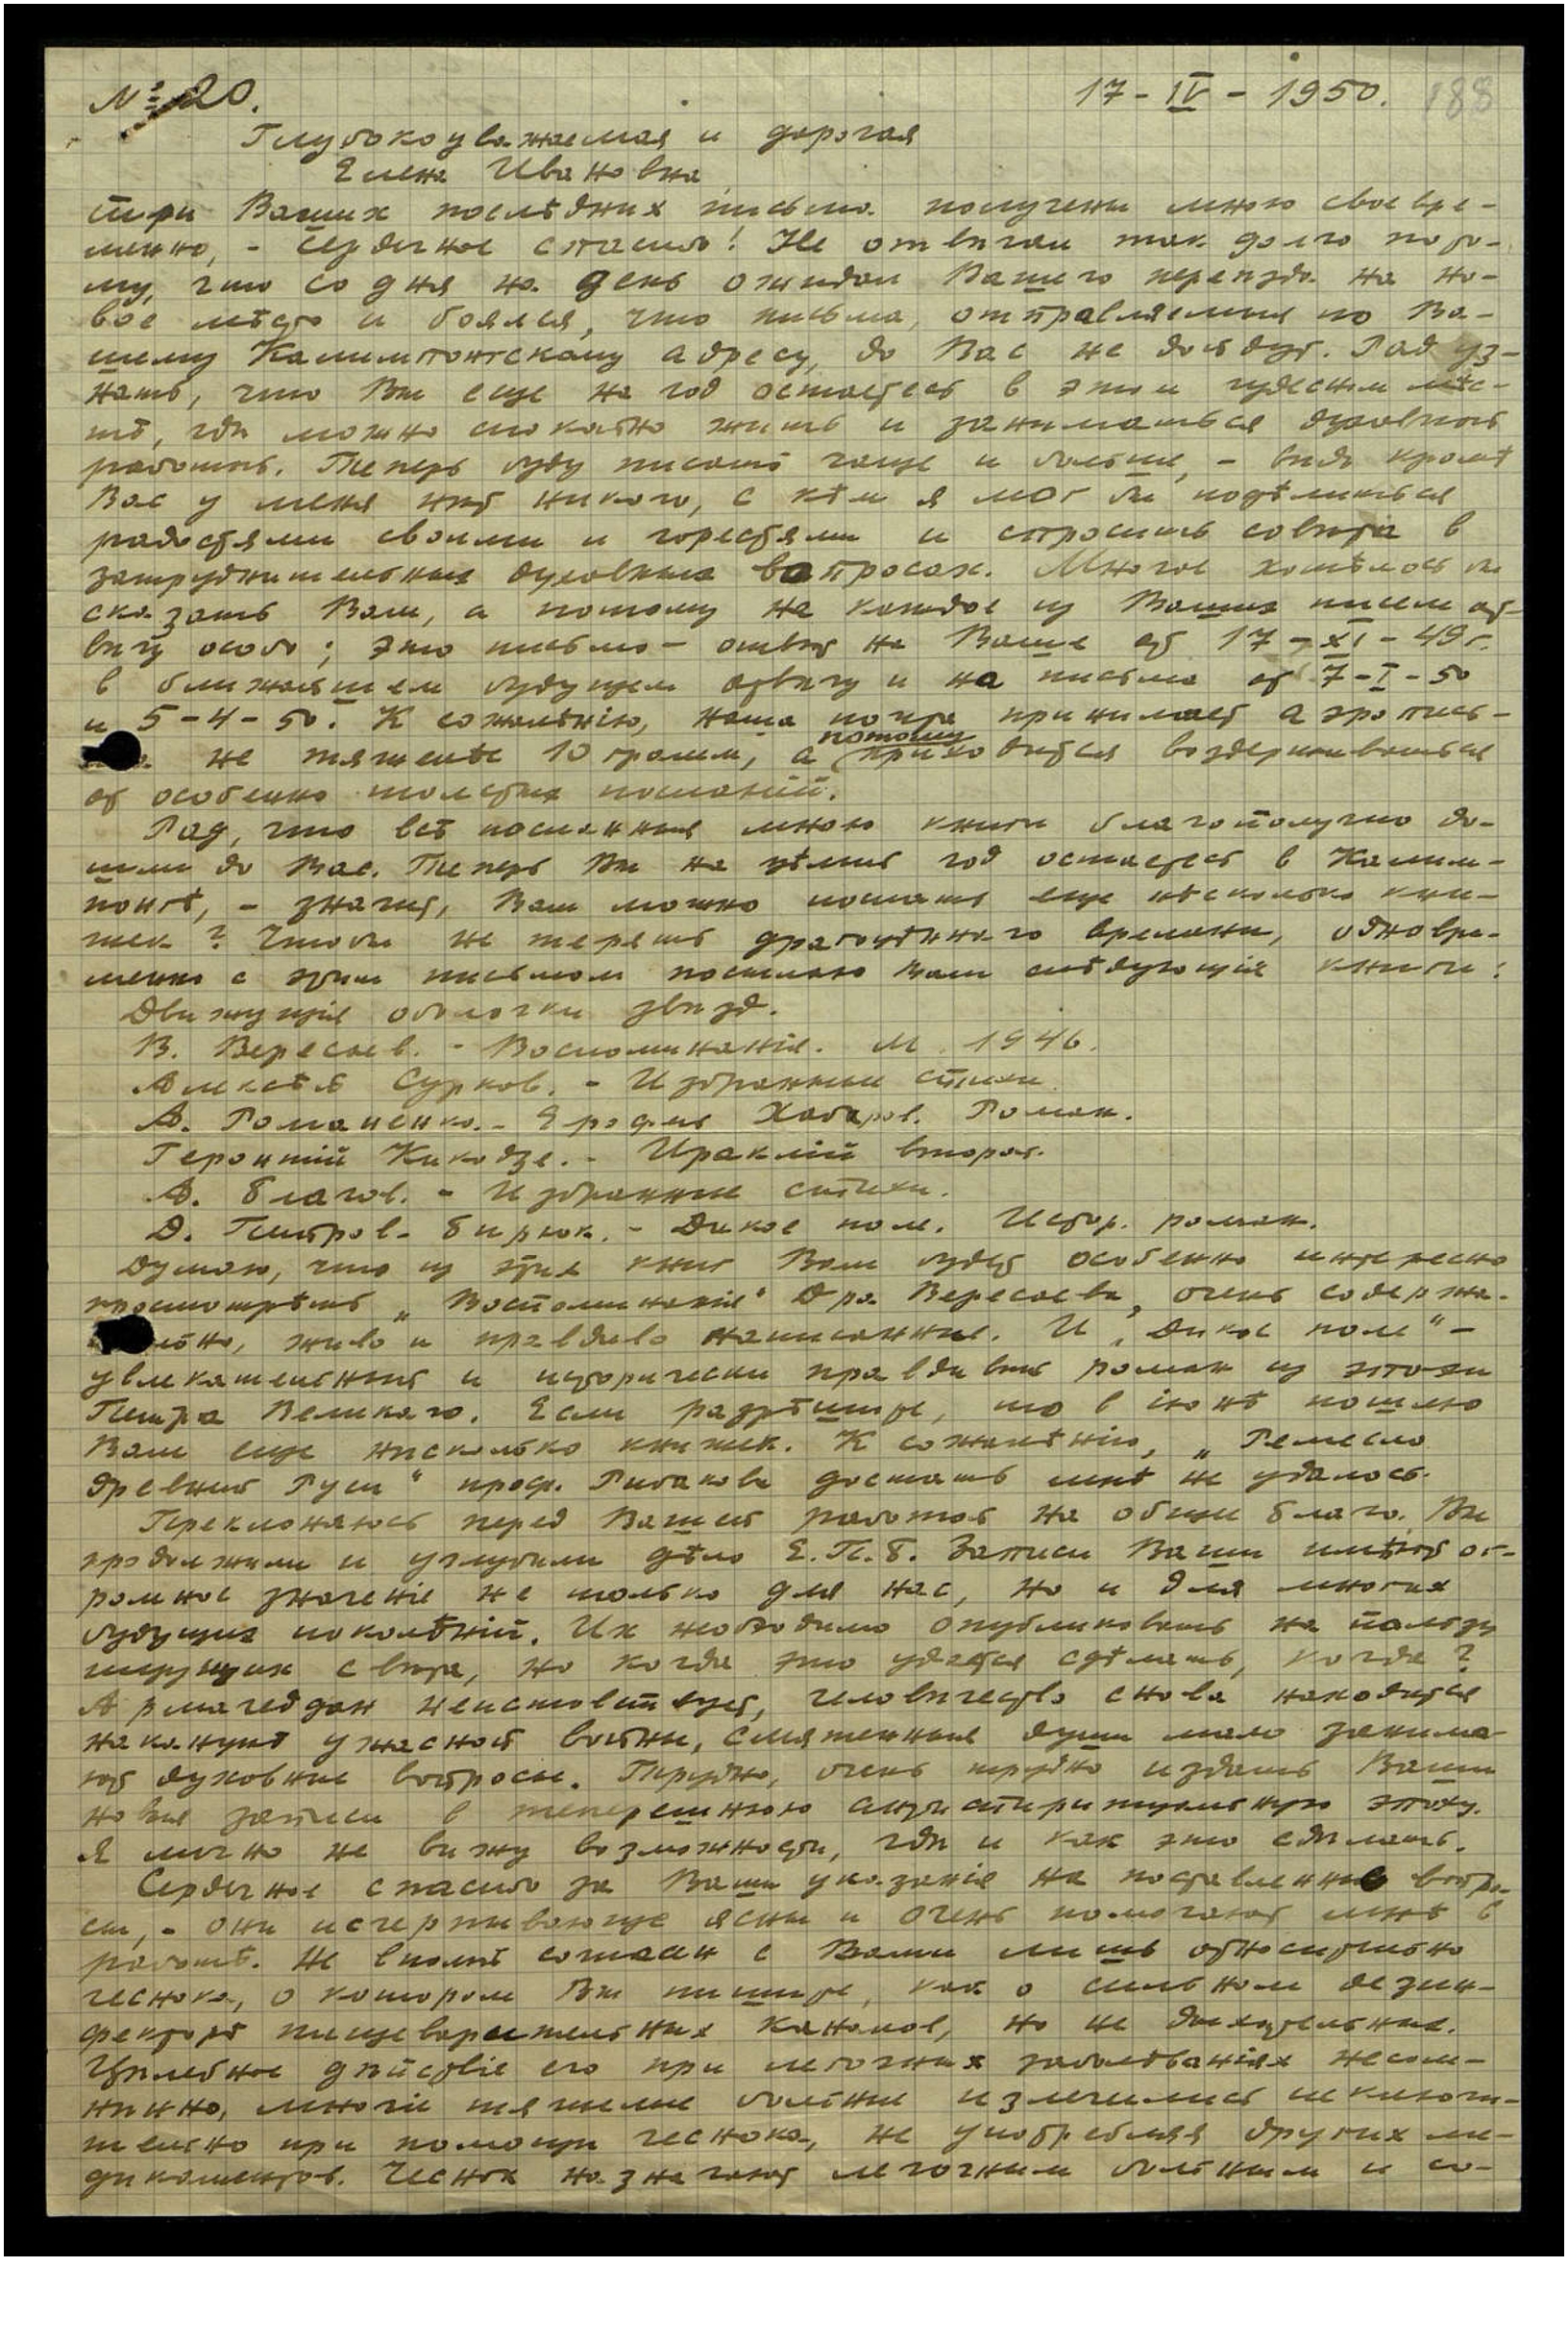 № 20.
17 - IV - 1950. 188
Глубокоуважаемая и дорогая
Елена Ивановна,
три Ваших послѣдних письма получены мною своевре-
менно, - сердечное спасибо! Не отвѣчал так долго пото-
му, что со дня на день ожидал Вашего переѣзда на но-
вое мѣсто и боялся, что письма, отправляемыя по Ва-
шему Калимпонгскому адресу, до Вас не дойдут. Рад уз-
нать, что Вы еще на год остаетесь в этом чудесном мѣс-
тѣ, гдѣ можно спокойно жить и заниматься духовной
работой. Теперь буду писать чаще и больше, - вѣдь кромѣ
Вас у меня нѣт никого, с кѣм я мог бы подѣлиться
радостями своими и горестями и спросить совѣта в
затруднительных духовных вопросах. Многое хотѣлось бы
сказать Вам, а потому на каждое из Ваших писем от-
вѣчу особо; это письмо - отвѣт на Ваше от 17 - XI - 49 г.
в ближайшем будущем отвѣчу и на письма от 7 - I - 50
и 5 - 4 - 50. К сожалѣнію, наша почта принимает аэропись-
не тяжелѣе 10 грамм, а потому приходится воздерживаться
от особенно толстых посланій.
Рад, что всѣ посланныя мною книги благополучно до-
шли до Вас. Теперь Вы на цѣлый год остаетесь в Калим-
понгѣ, - значит, Вам можно послать еще нѣсколько кни-
жек? Чтобы не терять драгоцѣннаго времени, одновре-
менно с этим письмом посылаю Вам слѣдующія книги:
Движущія оболочки звѣзд.
В. Вересаев. - Воспоминанія. М. 1946.
Алексѣй Сурков. - Избранные стихи.
А. Романенко. - Ерофей Хабаров. Роман.
Геронтій Кикодзе. - Ираклій второй.
А. Благов. - Избранные стихи.
Д. Петров-Бирюк. - Дикое поле. Истор. роман.
Думаю, что из этих книг Вам будет особенно интересно
просмотрѣть „Воспоминанія" Д-ра Вересаева, очень содержа-
тельно, живо и правдиво написанные. И „Дикое поле" -
увлекательный и исторически правдивый роман из эпохи
Петра Великаго. Если разрѣшите, то в іюнѣ пошлю
Вам еще нѣсколько книжек. К сожалѣнію, „Ремесло
древней Руси" проф. Рыбакова достать мнѣ не удалось.
Преклоняюсь перед Вашей работой на общее благо. Вы
продолжили и углубили дѣло Е.П.Б. Записи Ваши имѣют ог-
ромное значеніе не только для нас, но и для многих
будущих поколѣній. Их необходимо опубликовать на пользу
ищущих свѣта, но когда это удастся сдѣлать, когда?
Армагеддон неистовствует, человѣчество снова находится
наканунѣ ужасной войны, смятенныя души мало занима-
ют духовные вопросы. Трудно, очень трудно издать Ваши
новыя записи в теперешнюю антиспиритуальную эпоху.
Я лично не вижу возможности, гдѣ и как это сдѣлать.
Сердечное спасибо за Ваши указанія на поставленные вопро-
сы, - они исчерпывающе ясны и очень помогают мнѣ в
работѣ. Не вполнѣ согласен с Вами лишь относительно
чеснока, о котором Вы пишете, как о сильном дезин-
фекторѣ пищеварительных каналов, но не дыхательных.
Цѣлебное дѣйствіе его при легочных заболѣваніях несом-
нѣнно, многіе тяжелые больные излечились исключи-
тельно при помощи чеснока, не употребляя других ме-
дикаментов. Чеснок назначают легочным больным и со-